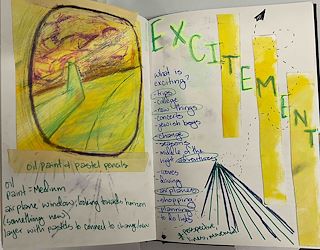 oil paint + pastel pencils
oil
paint = medium
airplane window, looking towards horizon
(something new)
layer with pastels to connect to change/new
EXCITEMENT
what is
exciting?
- trips
- college
- new things
- concerts
- jewish boys
- change
- seasons
- middle of the
night adventures
- waves
- driving
- airplanes
- shopping
- planning
- to do lists